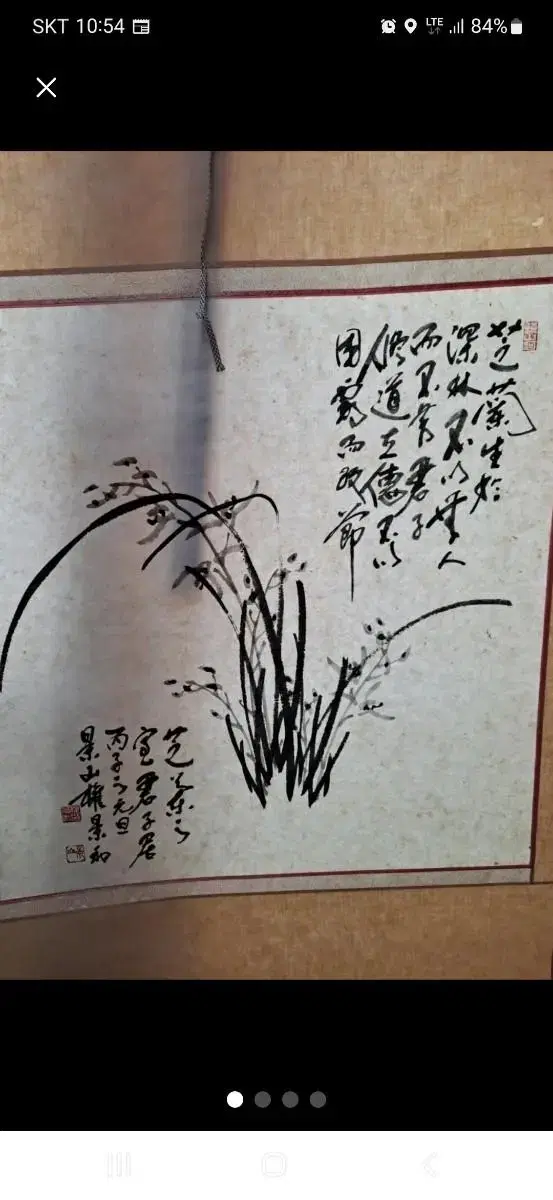 SKT 10:54 LTE 84%
芝蘭生於
深林不以無人
而不芳君子
修道立德不以
困窮而改節
室君子居
丙子之元旦
景山權景和